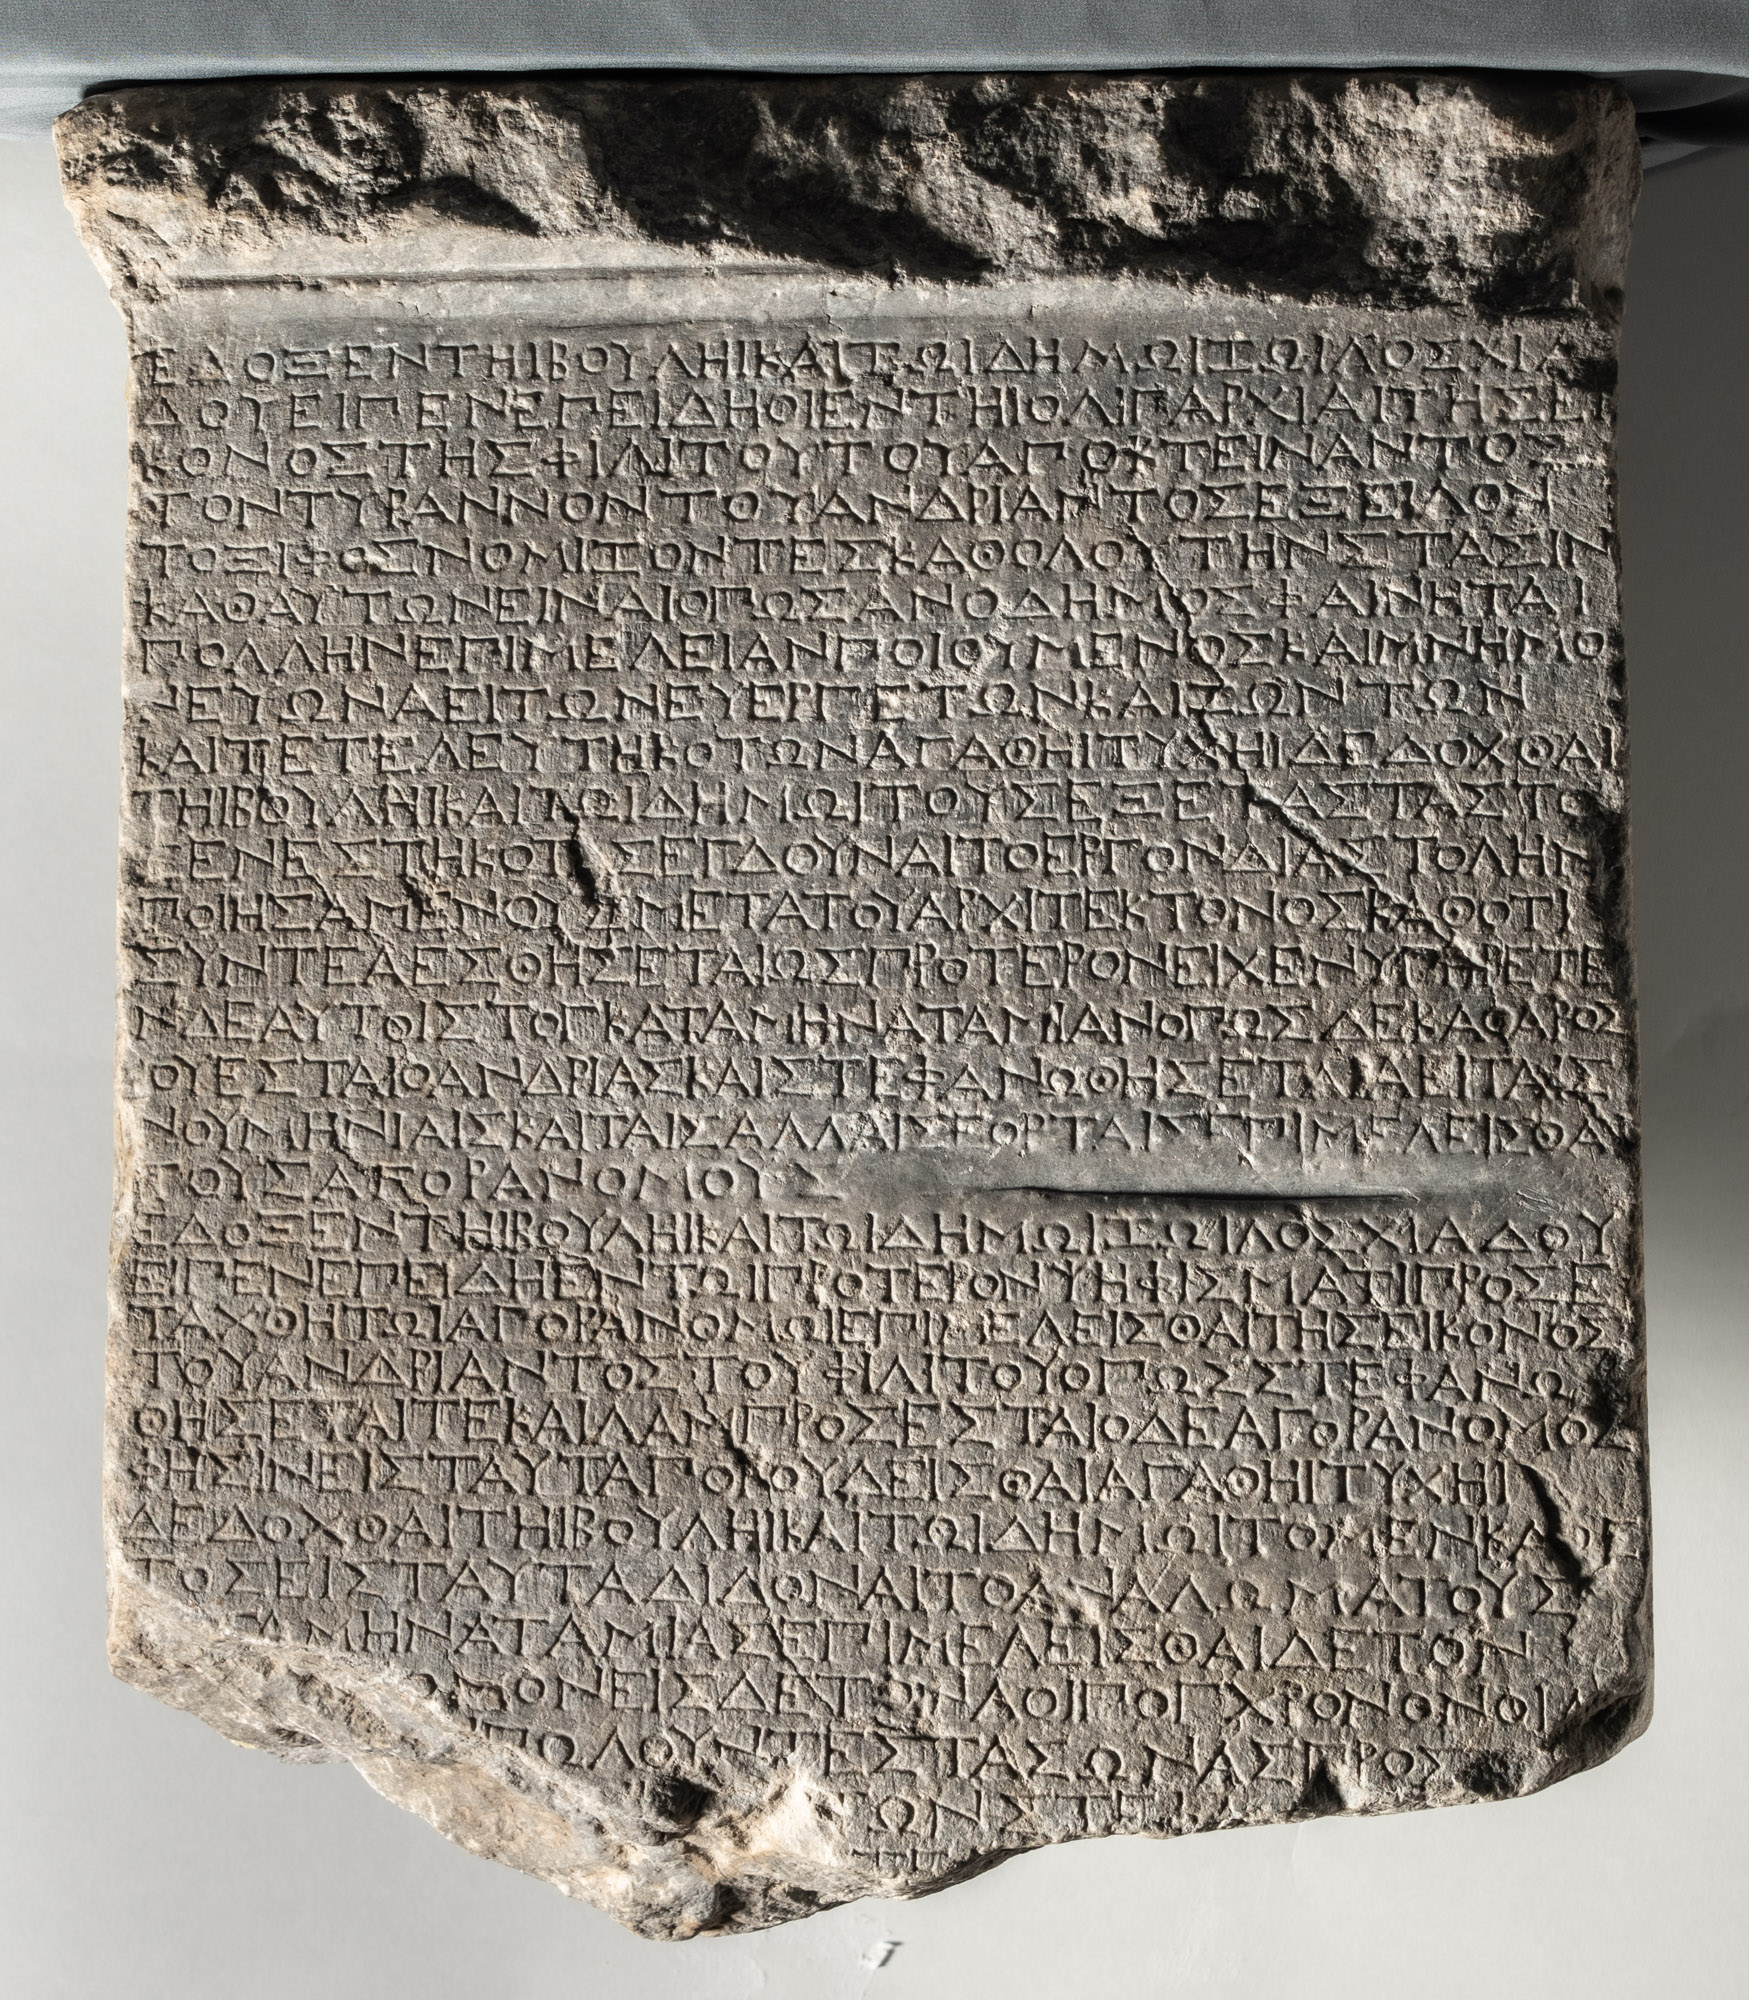 ΕΔΟΞΕΝΤΗΙΒΟΥΛΗΙΚΑΙΤΩΙΔΗΜΩΙΖΩΙΛΟΣΧΙΑ
ΔΟΥΕΙΠΕΝΕΠΕΙΔΗΟΙΕΝΤΗΙΟΛΙΓΑΡΧΙΑΙΤΗΣΕΙ
ΚΟΝΟΣΤΗΣΦΙΛΙΤΟΥΤΟΥΑΠΟΚΤΕΙΝΑΝΤΟΣ
ΤΟΝΤΥΡΑΝΝΟΝΤΟΥΑΝΔΡΙΑΝΤΟΣΕΞΕΙΛΟΝ
ΤΟΞΙΦΟΣΝΟΜΙΖΟΝΤΕΣΚΑΘΟΛΟΥΤΗΝΣΤΑΣΙΝ
ΚΑΘΑΥΤΩΝΕΙΝΑΙΟΠΩΣΑΝΟΔΗΜΟΣΦΑΙΝΗΤΑΙ
ΠΟΛΛΗΝΕΠΙΜΕΛΕΙΑΝΠΟΙΟΥΜΕΝΟΣΚΑΙΜΝΗΜΟ
ΝΕΥΩΝΑΕΙΤΩΝΕΥΕΡΓΕΤΩΝΚΑΙΖΩΝΤΩΝ
ΚΑΙΤΕΤΕΛΕΥΤΗΚΟΤΩΝΑΓΑΘΗΙΤΥΧΗΙΔΕΔΟΧΘΑΙ
ΤΗΙΒΟΥΛΗΙΚΑΙΤΩΙΔΗΜΩΙΤΟΥΣΕΞΕΤΑΣΤΑΣΤΟ
ΣΕΝΕΣΤΗΚΟΤΑΣΕΓΔΟΥΝΑΙΤΟΕΡΓΟΝΔΙΑΣΤΟΛΗΝ
ΠΟΙΗΣΑΜΕΝΟΥΣΜΕΤΑΤΟΥΑΡΧΙΤΕΚΤΟΝΟΣΚΑΘΟΤΙ
ΣΥΝΤΕΛΕΣΘΗΣΕΤΑΙΩΣΠΡΟΤΕΡΟΝΕΙΧΕΝΥΠΗΡΕΤΕΙ
ΝΔΕΑΥΤΟΙΣΤΟΓΚΑΤΑΜΗΝΑΤΑΜΙΑΝΟΠΩΣΔΕΚΑΘΑΡΟΣ
ΙΟΥΕΣΤΑΙΟΑΝΔΡΙΑΣΚΑΙΣΤΕΦΑΝΩΘΗΣΕΤΑΙΑΕΙΤΑΙΣ
ΝΟΥΜΗΝΙΑΙΣΚΑΙΤΑΙΣΑΛΛΑΙΣΕΟΡΤΑΙΣΕΠΙΜΕΛΕΙΣΘΑΙ
ΤΟΥΣΑΓΟΡΑΝΟΜΟΥΣ
ΕΔΟΞΕΝΤΗΙΒΟΥΛΗΙΚΑΙΤΩΙΔΗΜΩΙΖΩΙΛΟΣΧΙΑΔΟΥ
ΕΙΠΕΝΕΠΕΙΔΗΕΝΤΩΙΠΡΟΤΕΡΟΝΨΗΦΙΣΜΑΤΙΠΡΟΣΕ
ΤΑΧΘΗΤΩΙΑΓΟΡΑΝΟΜΩΙΕΠΙΜΕΛΕΙΣΘΑΙΤΗΣΕΙΚΟΝΟΣ
ΤΟΥΑΝΔΡΙΑΝΤΟΣΤΟΥΦΙΛΙΤΟΥΟΠΩΣΣΤΕΦΑΝΩ
ΘΗΣΕΤΑΙΤΕΚΑΙΛΑΜΠΡΟΣΕΣΤΑΙΟΔΕΑΓΟΡΑΝΟΜΟΣ
ΦΗΣΙΝΕΙΣΤΑΥΤΑΠΟΡΟΥΔΕΙΣΘΑΙΑΓΑΘΗΙΤΥΧΗΙ
ΔΕΔΟΧΘΑΙΤΗΙΒΟΥΛΗΙΚΑΙΤΩΙΔΗΜΩΙΤΟΜΕΝΚΑΘΕ
ΤΟΣΕΙΣΤΑΥΤΑΔΙΔΟΝΑΙΤΟΑΝΑΛΩΜΑΤΟΥΣ
ΤΑΜΗΝΑΤΑΜΙΑΣΕΠΙΜΕΛΕΙΣΘΑΙΔΕΤΟΝ
ΟΜΟΝΕΙΣΔΕΤΟΝΛΟΙΠΟΓΧΡΟΝΟΝΟΙ
ΠΩΛΟΥΝΤΕΣΤΑΣΩΝΑΣΠΡΟΣ
ΤΩΝΣΤΕ